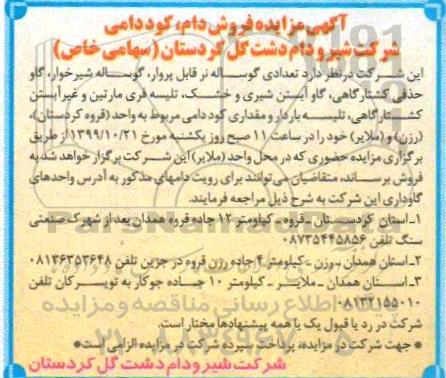 آگهی مزایده فروش دام، کود دامی
شرکت شیر و دام دشت گل کردستان (سهامی خاص)
این شرکت در نظر دارد تعدادی گوساله نر قابل پروار، گوساله شیرخوار، گاو
حذفی کشتارگاهی، گاو آبستن شیری و خشک، تلیسه فری مارتین و غیر آبستن
کشتارگاهی، تلیسه باردار و مقداری کود دامی مربوط به واحد (قروه کردستان)،
(رزن) و (ملایر) خود را در ساعت ۱۱ صبح روز یکشنبه مورخ ۱۳۹۹/۱۰/۲۱ از طریق
برگزاری مزایده حضوری که در محل واحد (ملایر) این شرکت برگزار خواهد شد به
فروش برساند، متقاضیان می‌توانند برای رویت دامهای مذکور به آدرس واحدهای
گاوداری این شرکت به شرح ذیل مراجعه فرمایند.
۱ـ استان کردستان ـ قروه ـ کیلومتر ۱۲ جاده قروه همدان بعد از شهرک صنعتی
سنگ تلفن ۰۸۷۳۵۴۴۵۸۵۶
۲ـ استان همدان ـ رزن ـ کیلومتر ۴ جاده رزن قروه در جزین تلفن ۰۸۱۳۶۳۵۳۶۴۸
۳ـ استان همدان ـ ملایر ـ کیلومتر ۱۰ جاده جوکار به تویسرکان تلفن
۰۸۱۳۲۱۵۵۰۱۰
شرکت در رد یا قبول یک یا همه پیشنهادها مختار است.
● جهت شرکت در مزایده، پرداخت سپرده شرکت در مزایده الزامی است ●
شرکت شیر و دام دشت گل کردستان